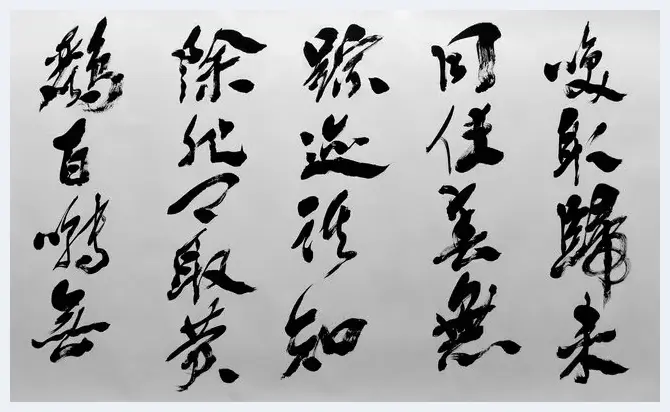 喚取歸来
同住春無
踪迹誰知
除非問取黄
鸝百囀無